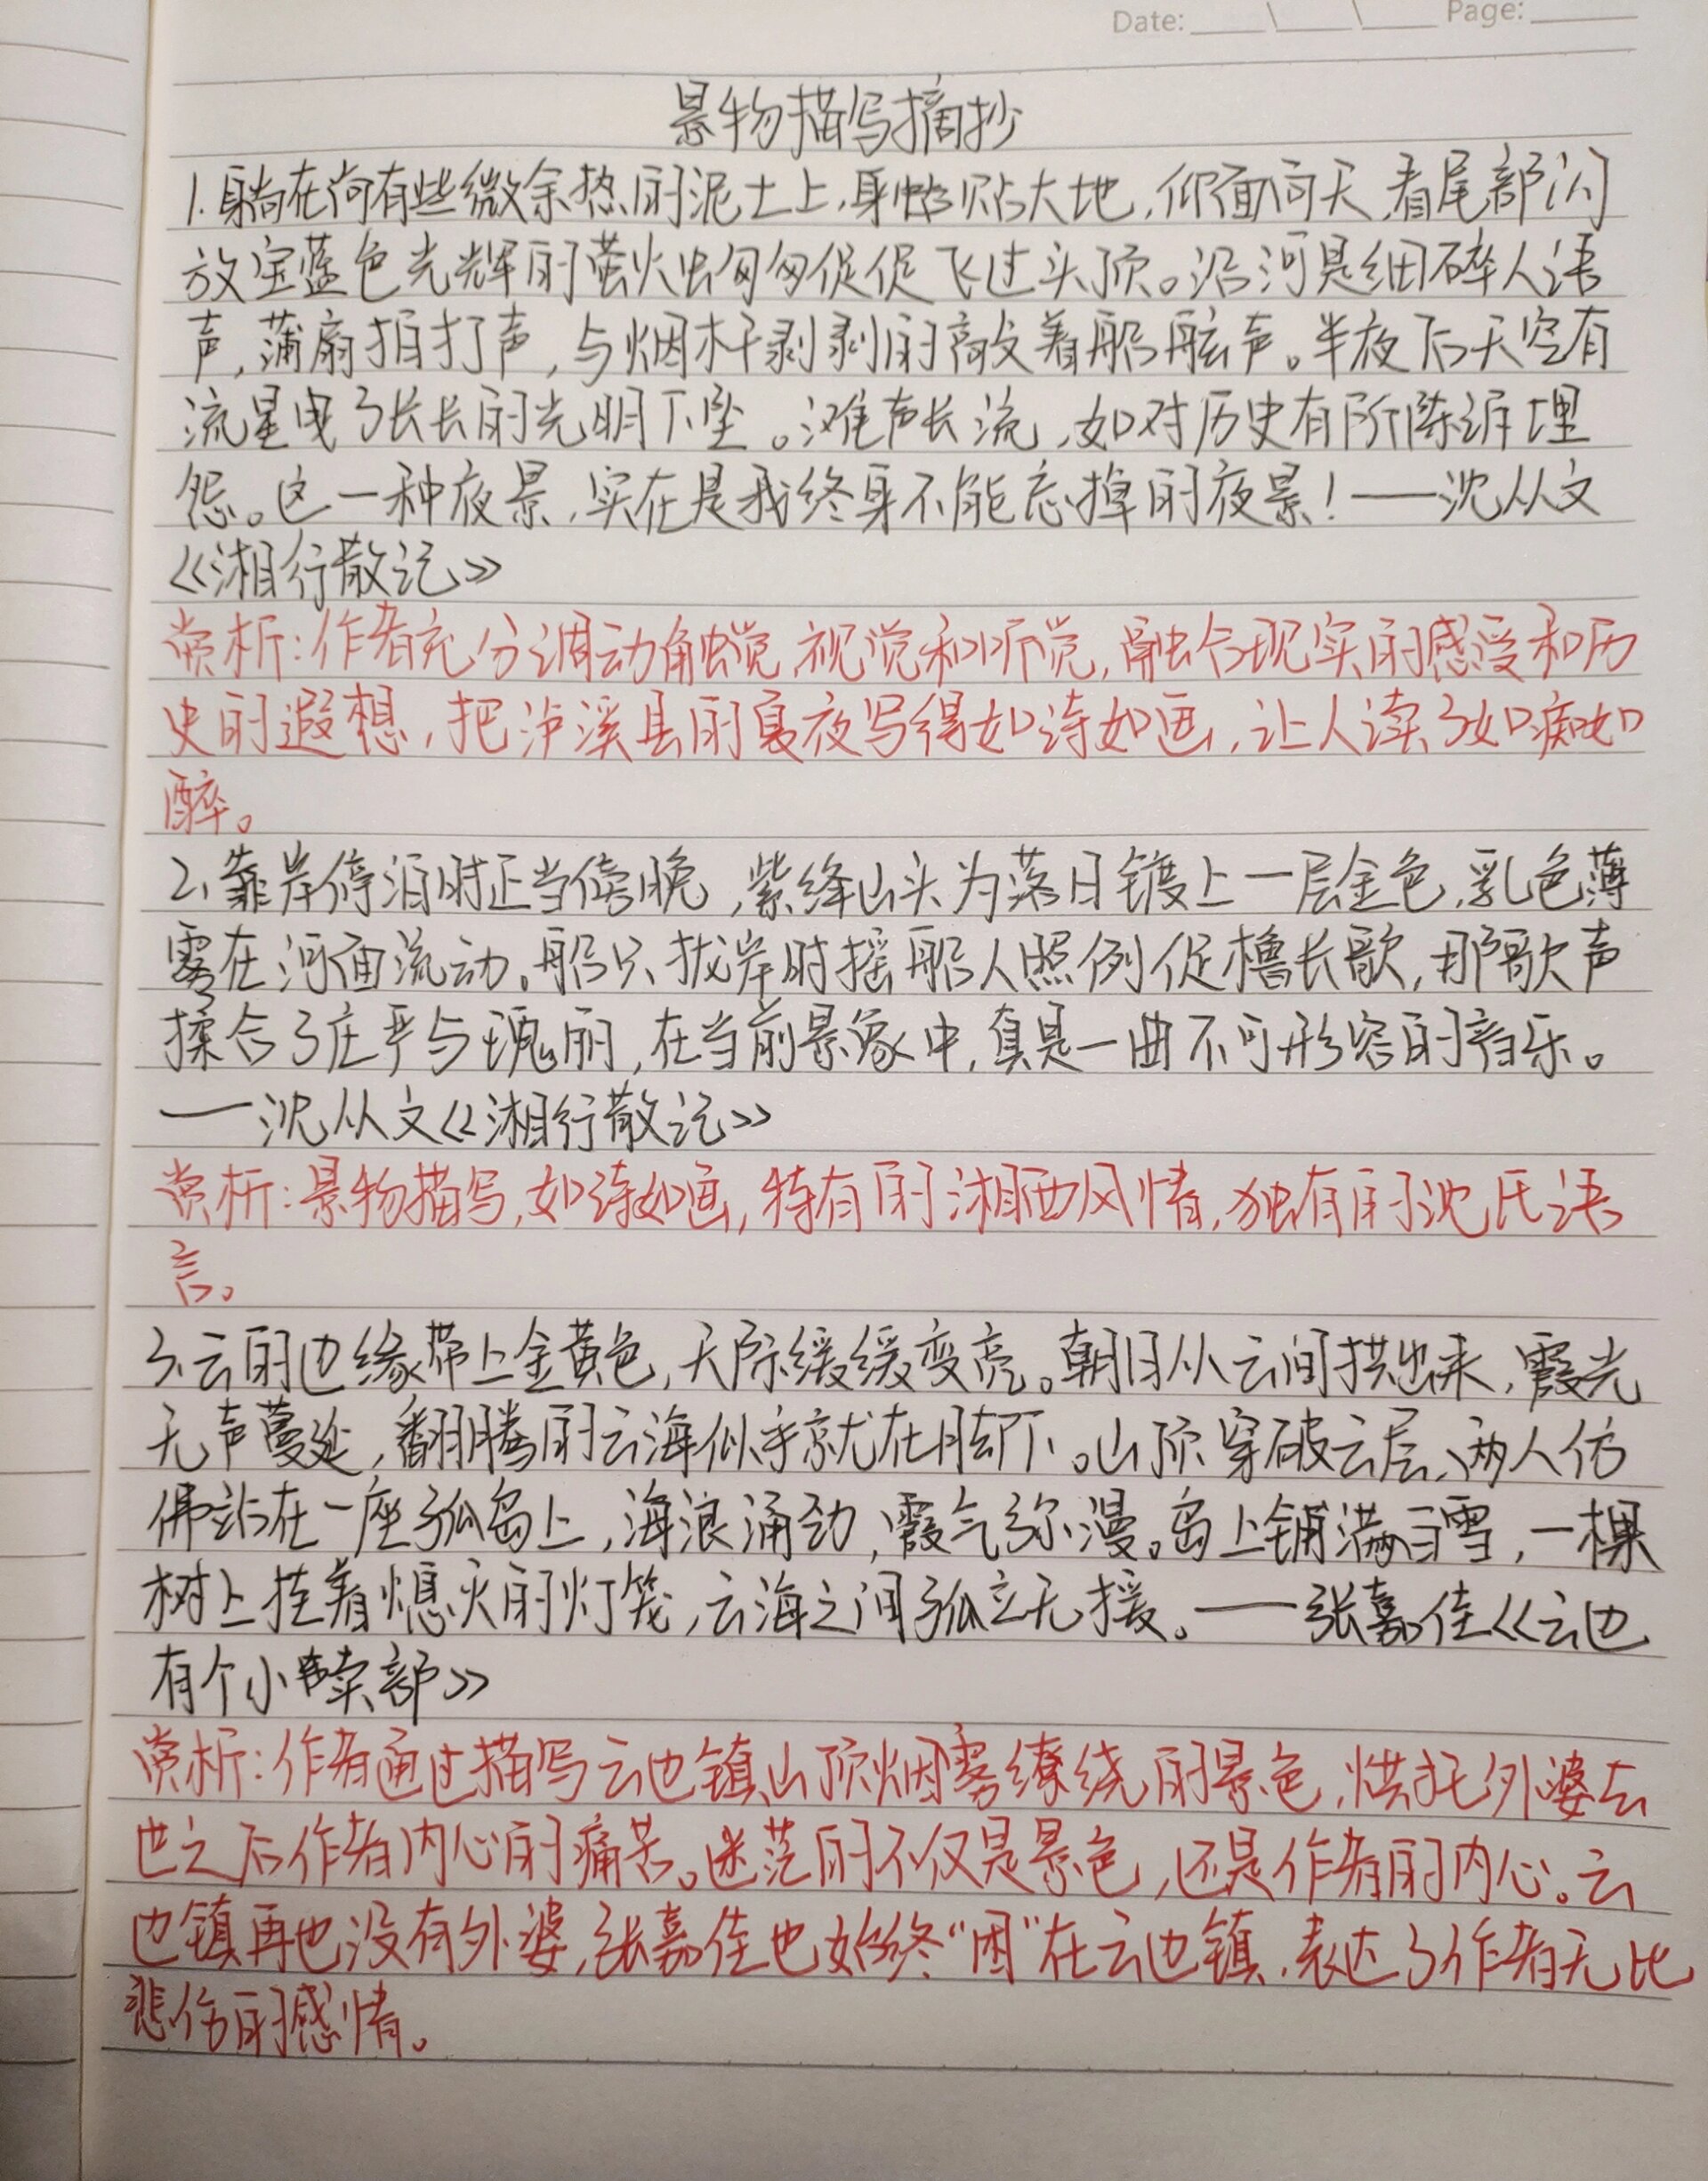 Date: ____ \ ____ \ ____ Page: ____
景物描写摘抄
1.躺在尚有些微余热的泥土上,身贴大地,仰面向天,看尾部闪
放宝蓝色光辉的萤火虫匆匆促促飞过头顶。沿河是细碎人语
声,蒲扇拍打声,与烟杆剥剥的敲着船舷声。半夜后天空有
流星曳了长长的光明下坠。滩声长流,如对历史有所陈诉埋
怨。这一种夜景,实在是我终身不能忘掉的夜景!——沈从文
《湘行散记》
赏析:作者充分调动触觉、视觉和听觉,融合现实的感受和历
史的遐想,把泸溪县的夏夜写得如诗如画,让人读了如痴如
醉。
2.靠岸停泊时正当傍晚,紫绛山头为落日镀上一层金色,乳色薄
雾在河面流动。船只拢岸时摇船人照例促橹长歌,那歌声
揉合了庄严与瑰丽,在当前景象中,真是一曲不可形容的音乐。
——沈从文《湘行散记》
赏析:景物描写,如诗如画,特有的湘西风情,独有的沈氏语
言。
3.云的边缘带上金黄色,天际缓缓变亮。朝日从云间拱出来,霞光
无声蔓延,翻腾的云海似乎就在脚下。山顶穿破云层,两人仿
佛站在一座孤岛上,海浪涌动,霞气弥漫。岛上铺满白雪,一棵
树上挂着熄灭的灯笼,云海之间孤立无援。——张嘉佳《云边
有个小卖部》
赏析:作者通过描写云边镇山顶烟雾缭绕的景色,烘托外婆去
世之后作者内心的痛苦。迷茫的不仅是景色,还是作者的内心。云
边镇再也没有外婆,张嘉佳也始终“困”在云边镇,表达了作者无比
悲伤的感情。